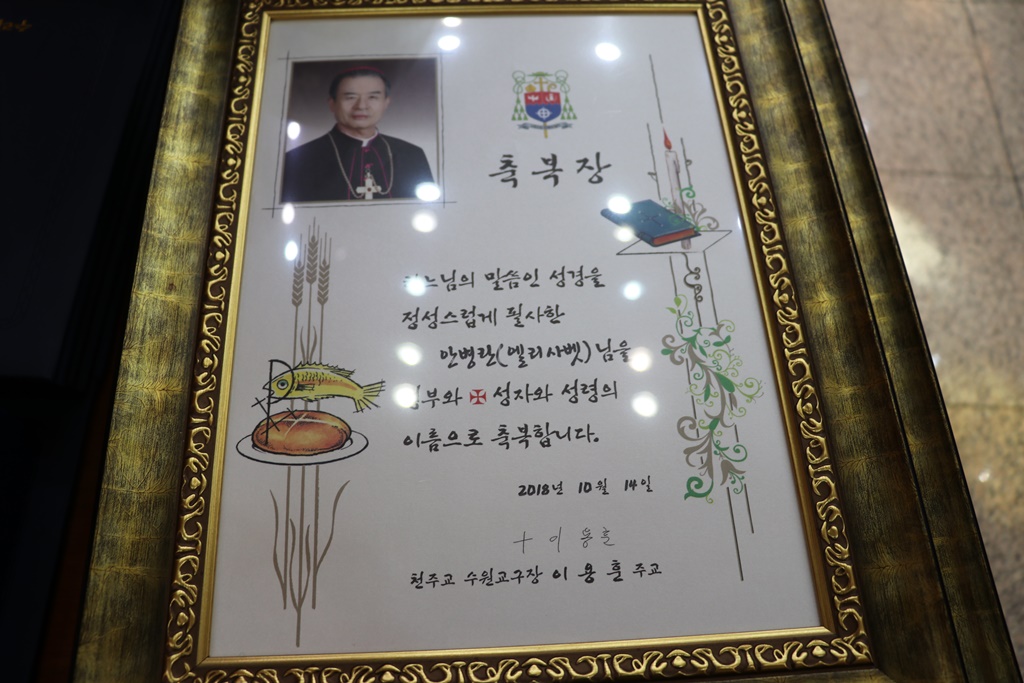 축복장
하느님의 말씀인 성경을
정성스럽게 필사한
안병란(엘리사벳)님을
성부와 성자와 성령의
이름으로 축복합니다.
2018년 10월 14일
이용훈
천주교 수원교구장 이용훈 주교